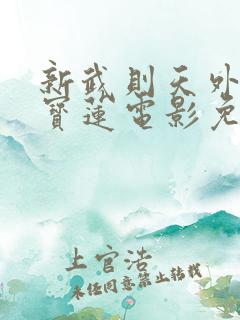 新武则天外
寳莲电影免
上官浩
未经同意禁止转载